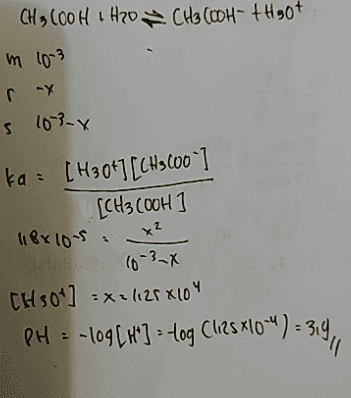 CH3COOH + H2O ⇌ CH3COOH- + H3O+
m 10-3
r -x
s 10-3-x
ka = [H3O+][CH3COO-]
[CH3COOH]
1,8x10-5 = x2
10-3-x
[H3O+] = x = 1,125 x104
PH = -log[H+] = -log (1,125x10-4) = 3,9//